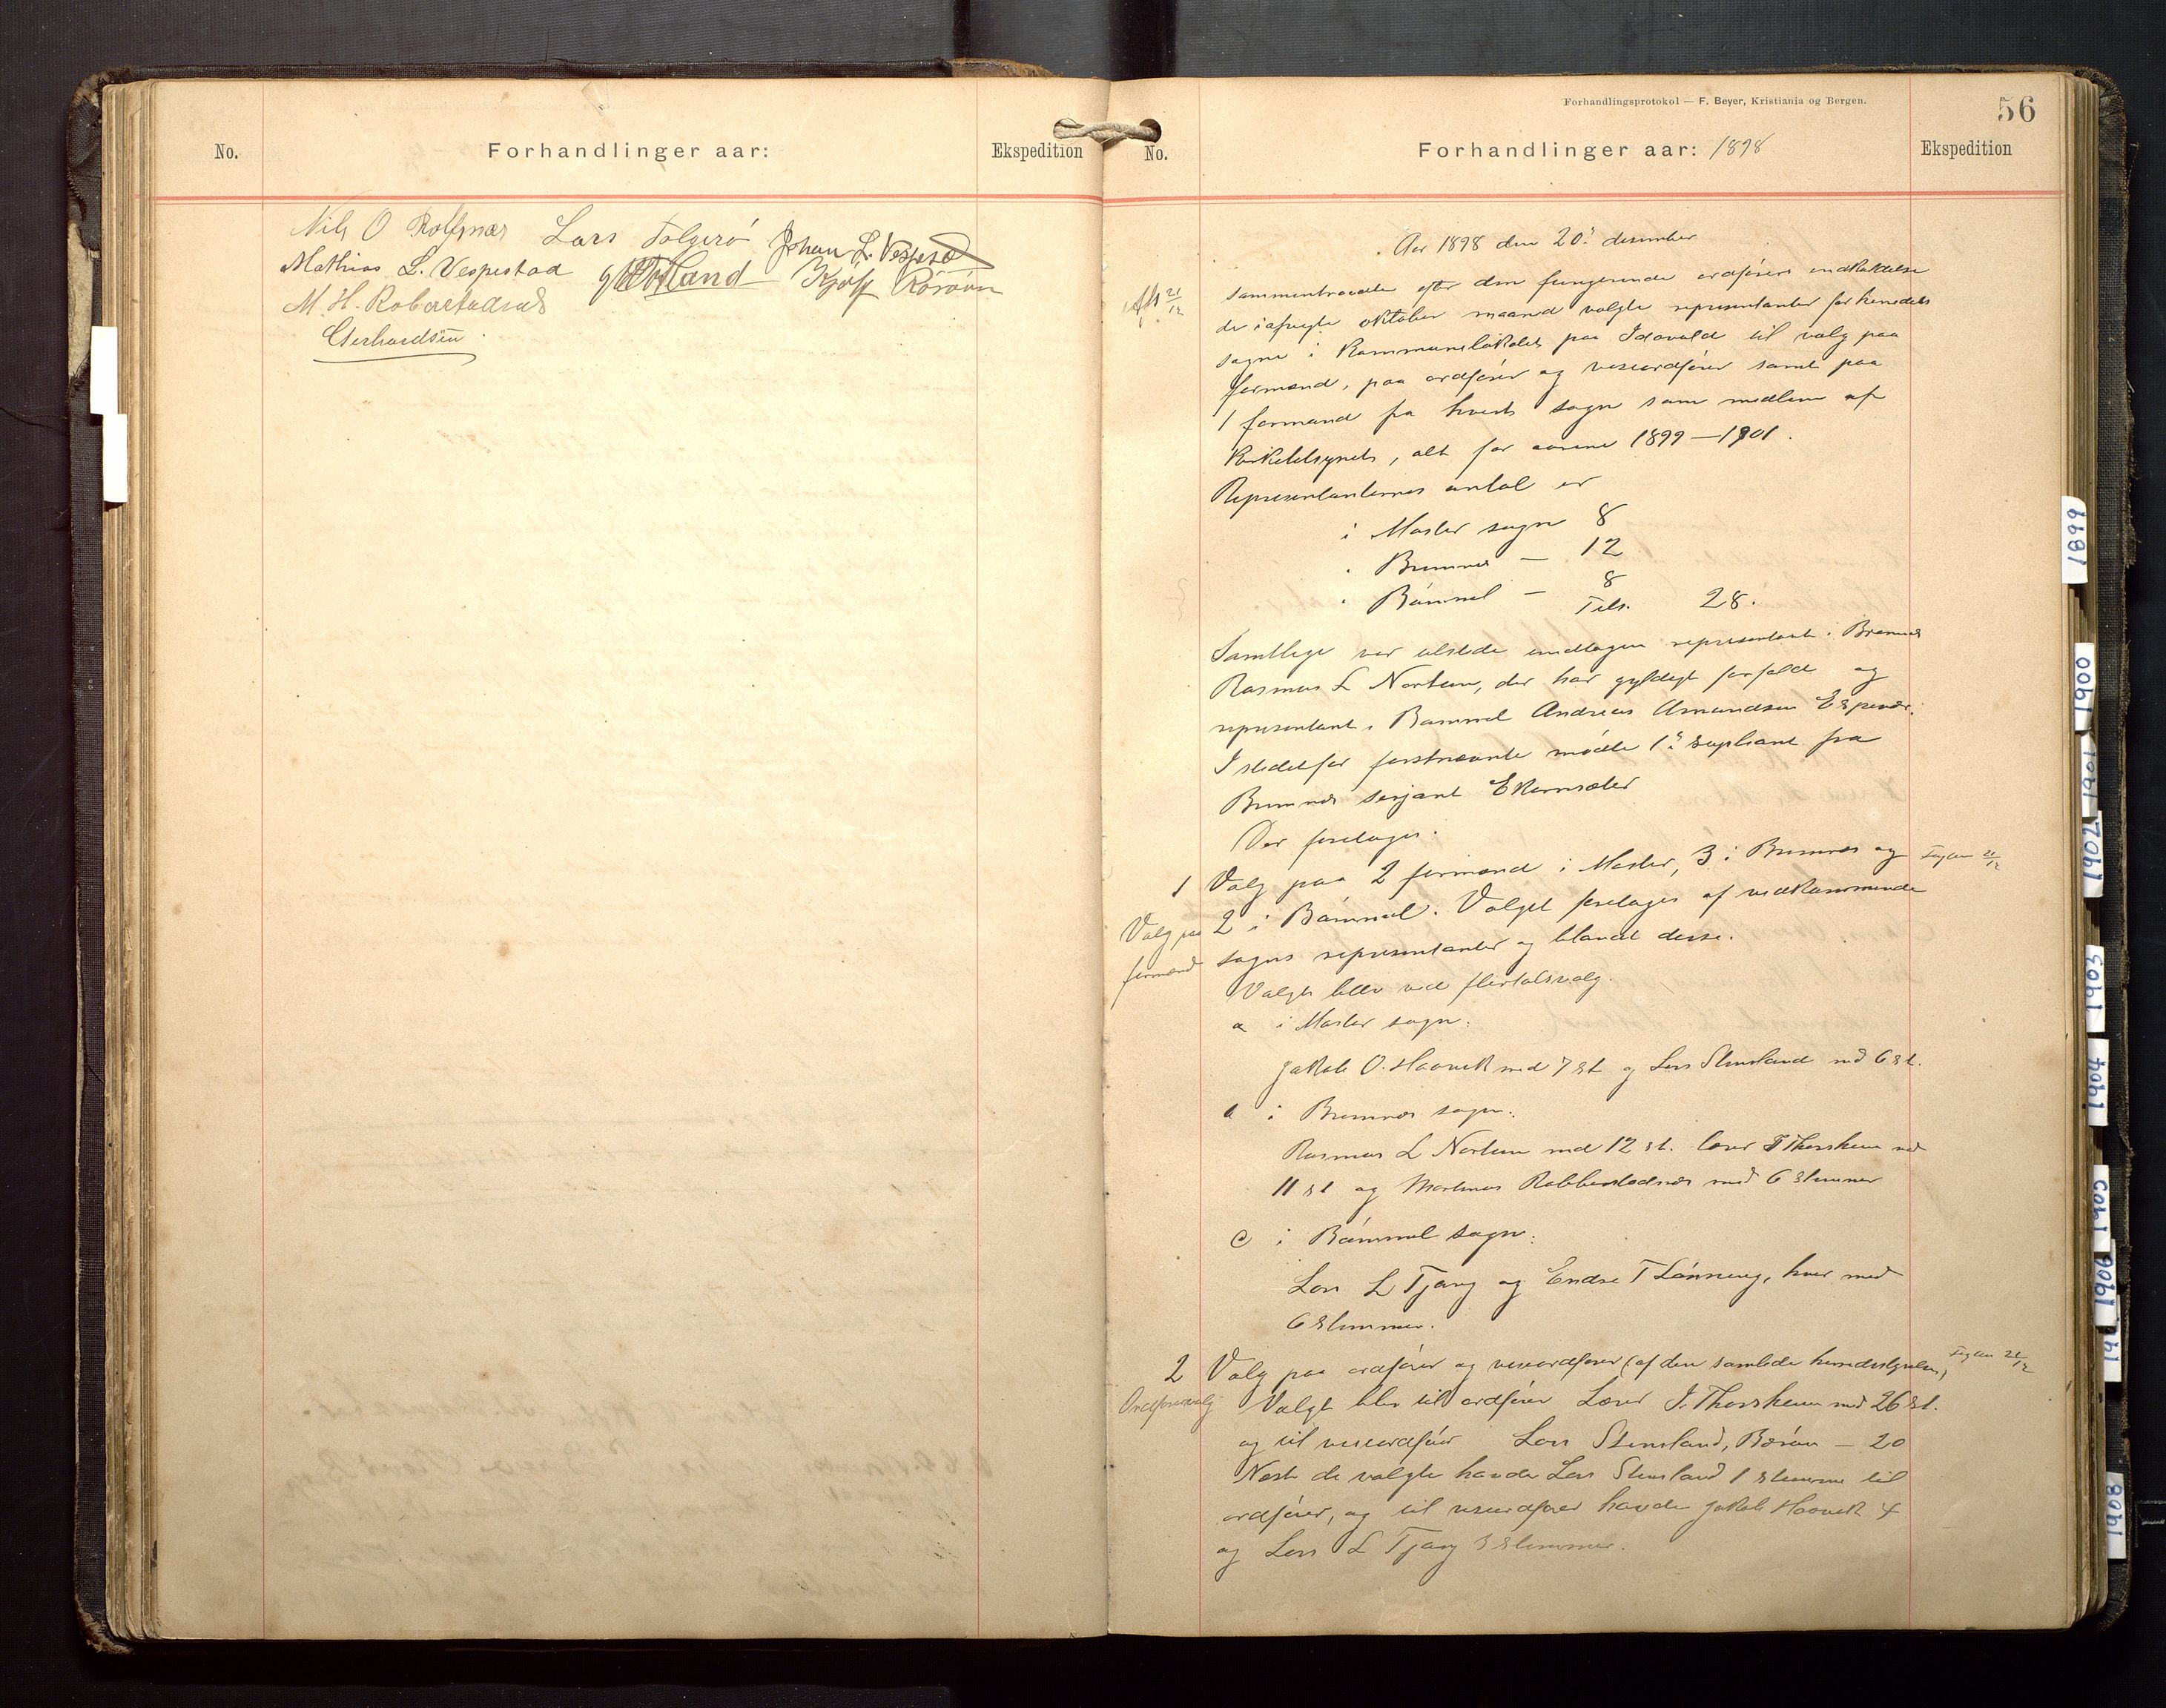 No.
Forhandlinger aar:
Ekspedition
Nils O Rolfsnes Lars Folgerö Johan L. Vespestad
Mathias L. Vespestad
M. H. Robberstadnes
Gerhardsen
Forhandlingsprotokol — F. Beyer, Kristiania og Bergen.
56
No.
Forhandlinger aar: 1898
Ekspedition
Aar 1898 den 20. desember
sammentraadte efter den fungerende ordförers indkaldelse
de i afvigte oktober maaned valgte representanter for herredets
sogne i Kommunelokalet paa Idavold til valg paa
formænd, paa ordförer og viseordförer samt paa
1 formand fra hvert sogn som medlem af
Kirketilsynet, alt for aarene 1899–1901.
Representanternes antal er
i Moster sogn 8
" Bremnes — 12
" Bömmel — 8
Tils. 28.
Samtlige var tilstede undtagen representant i Bremnes
Rasmus L Nortun, der har gyldigt forfald og
representant i Bömmel Andreas Amundsen Espevær.
I stedetfor förstnævnte mödte 1ste supliant fra
Bremnes serjant Ekornsæter
Der foretoges:
1 Valg paa 2 formænd i Moster, 3 i Bremnes og
2 i Bömmel. Valget foretages af vedkommende
sogns representanter og blandt disse.
Valg paa
formænd
Valgte blev ved flertalsvalg.
a i Moster sogn:
Jakob O. Haavik med 7 st. og Lars Stensland med 6 st.
b i Bremnes sogn:
Rasmus L Nortun med 12 st. lærer J Thorsheim med
11 st og Martinus Robberstadnes med 6 stemmer
c i Bömmel sogn:
Lars L Tjong og Endre T Lönning, hver med
6 stemmer.
2 Valg paa ordförer og viseordförer (af den samlede herredsstyrelse)
Ordförervalg
Valgt blev til ordförer Lærer J. Thorsheim med 26 st.
og til viseordförer Lars Stensland, Böröen — 20
Næst de valgte havde Lars Stensland 1 stemme til
ordförer, og til viseordförer havde Jakob Haavik 4
og Lars L Tjong 3 stemmer.
1899
1900
1901
1902
1903
1904
1905
1906
1908